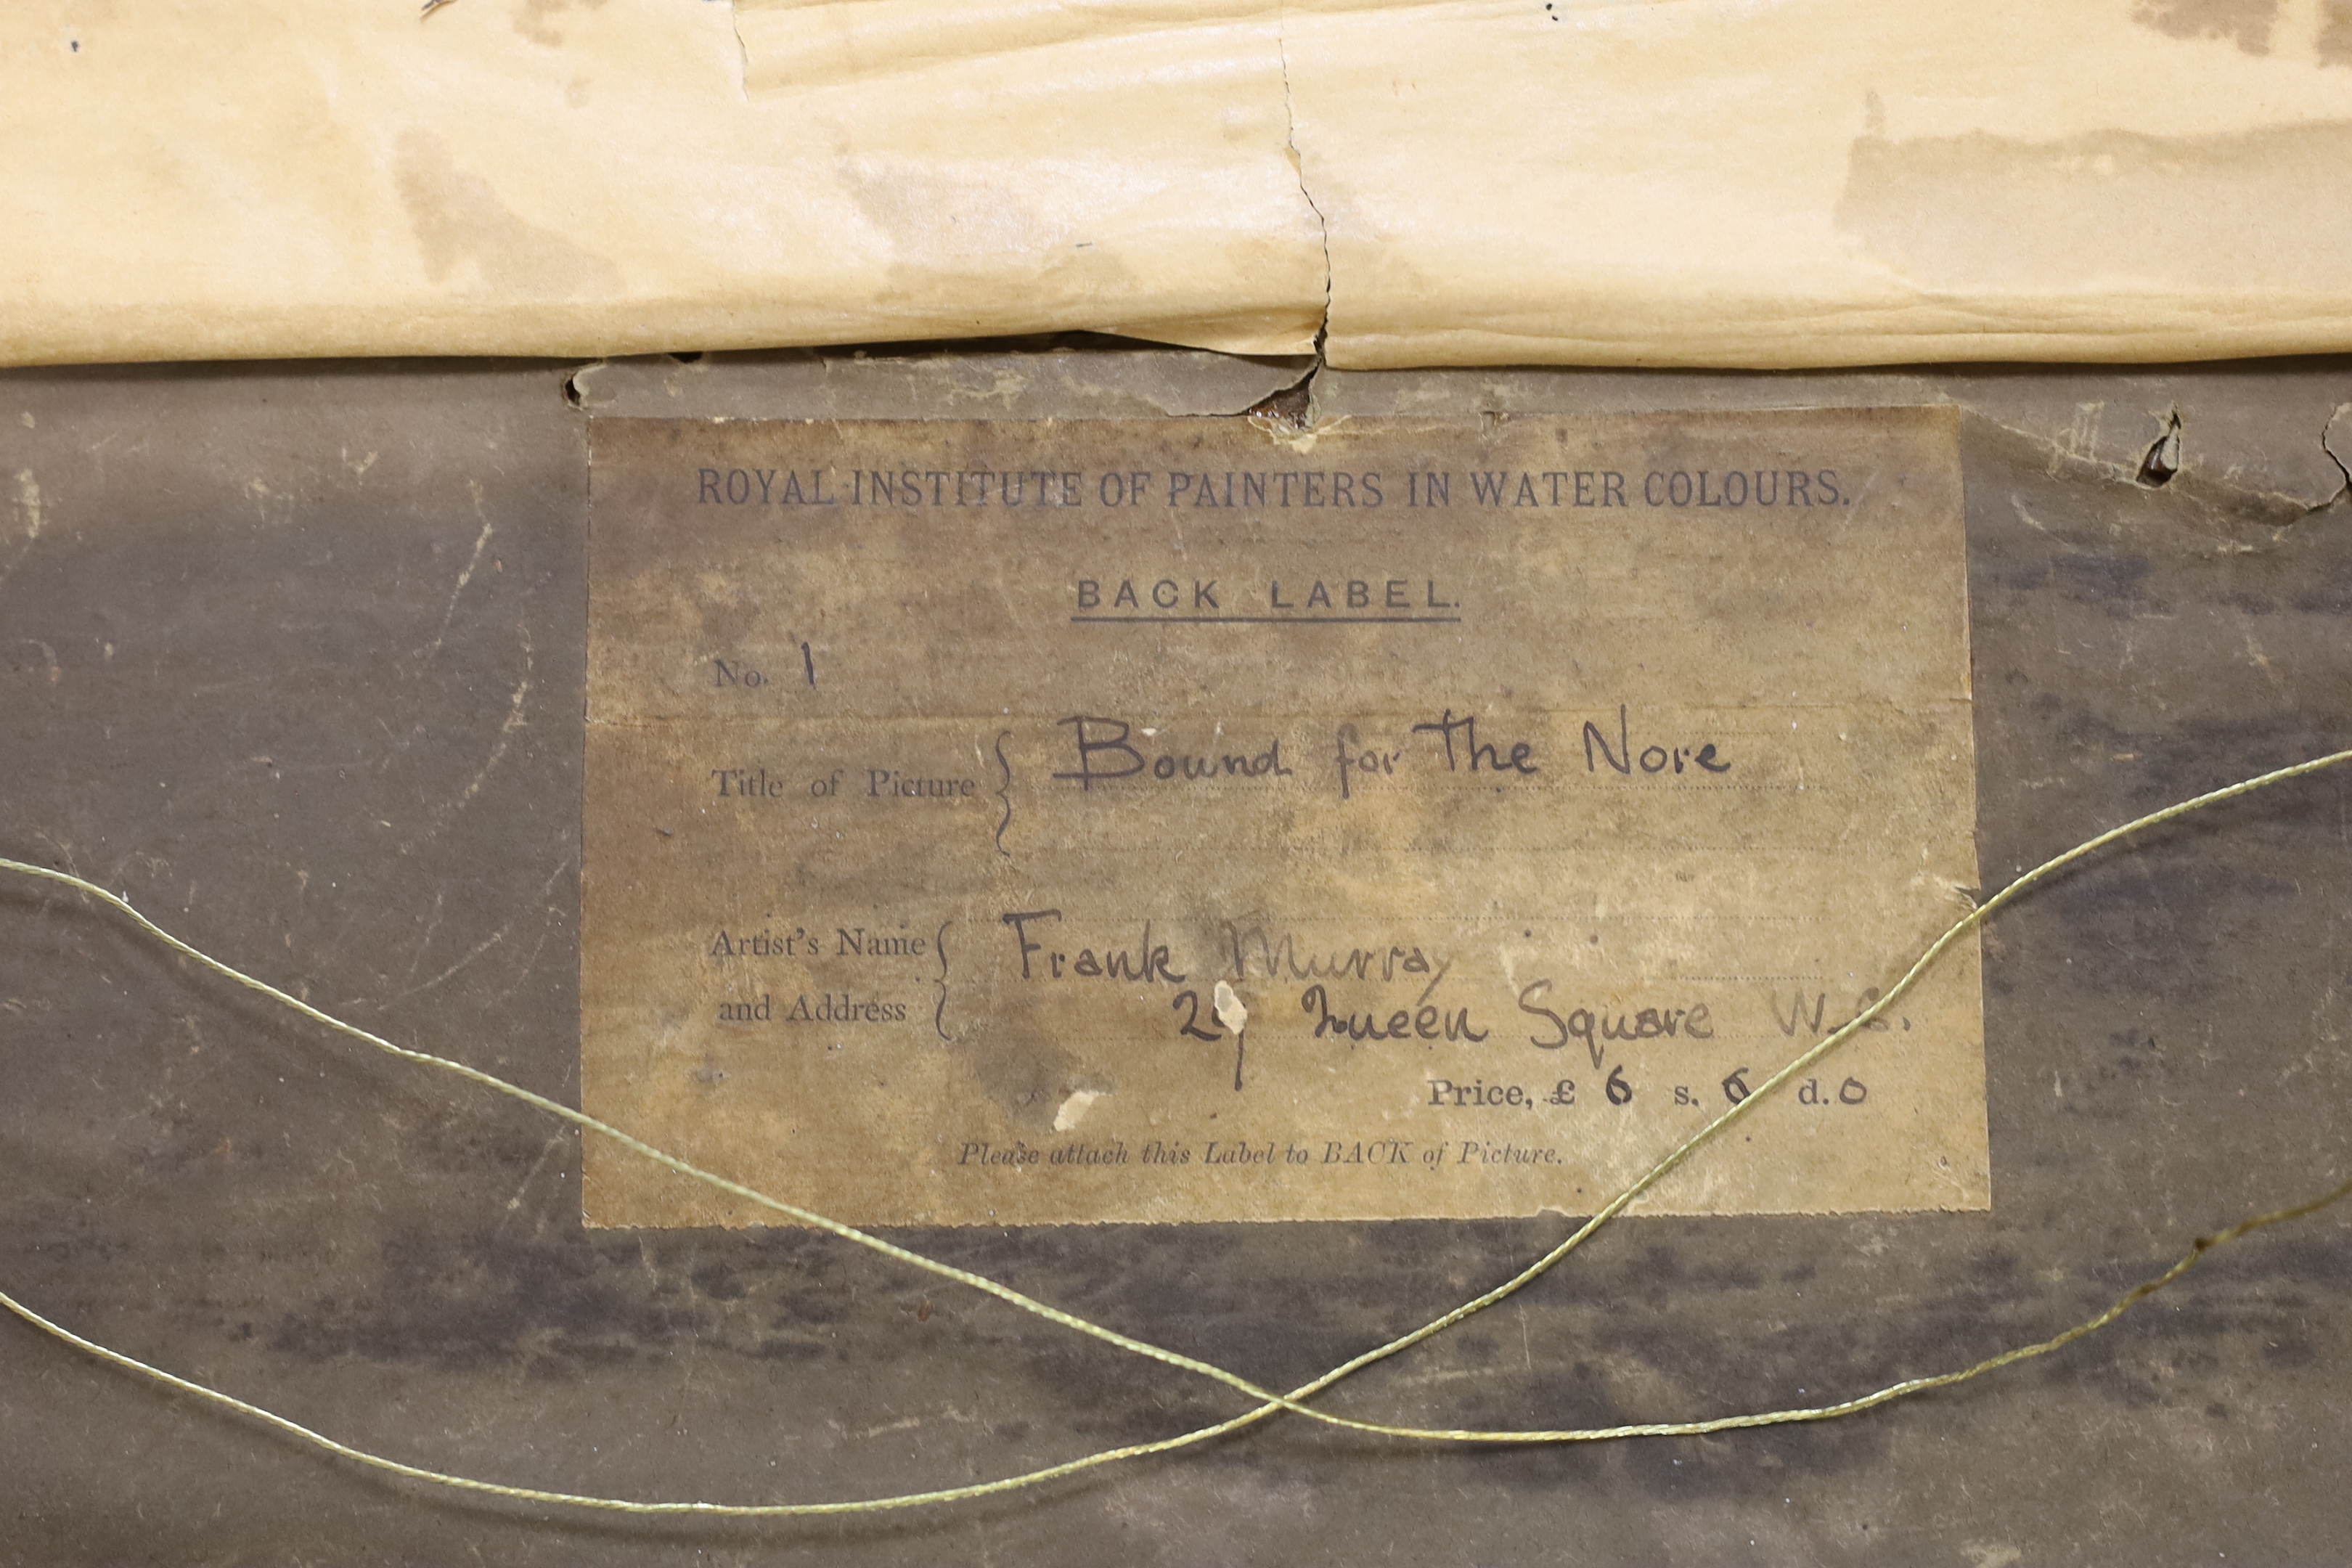 ROYAL INSTITUTE OF PAINTERS IN WATER COLOURS.
BACK LABEL.
No. 1
Title of Picture { Bound for The Nore
Artist's Name and Address { Frank Murray
29 Queen Square W.C.
Price, £ 6 s. 6 d. 0
Please attach this Label to BACK of Picture.